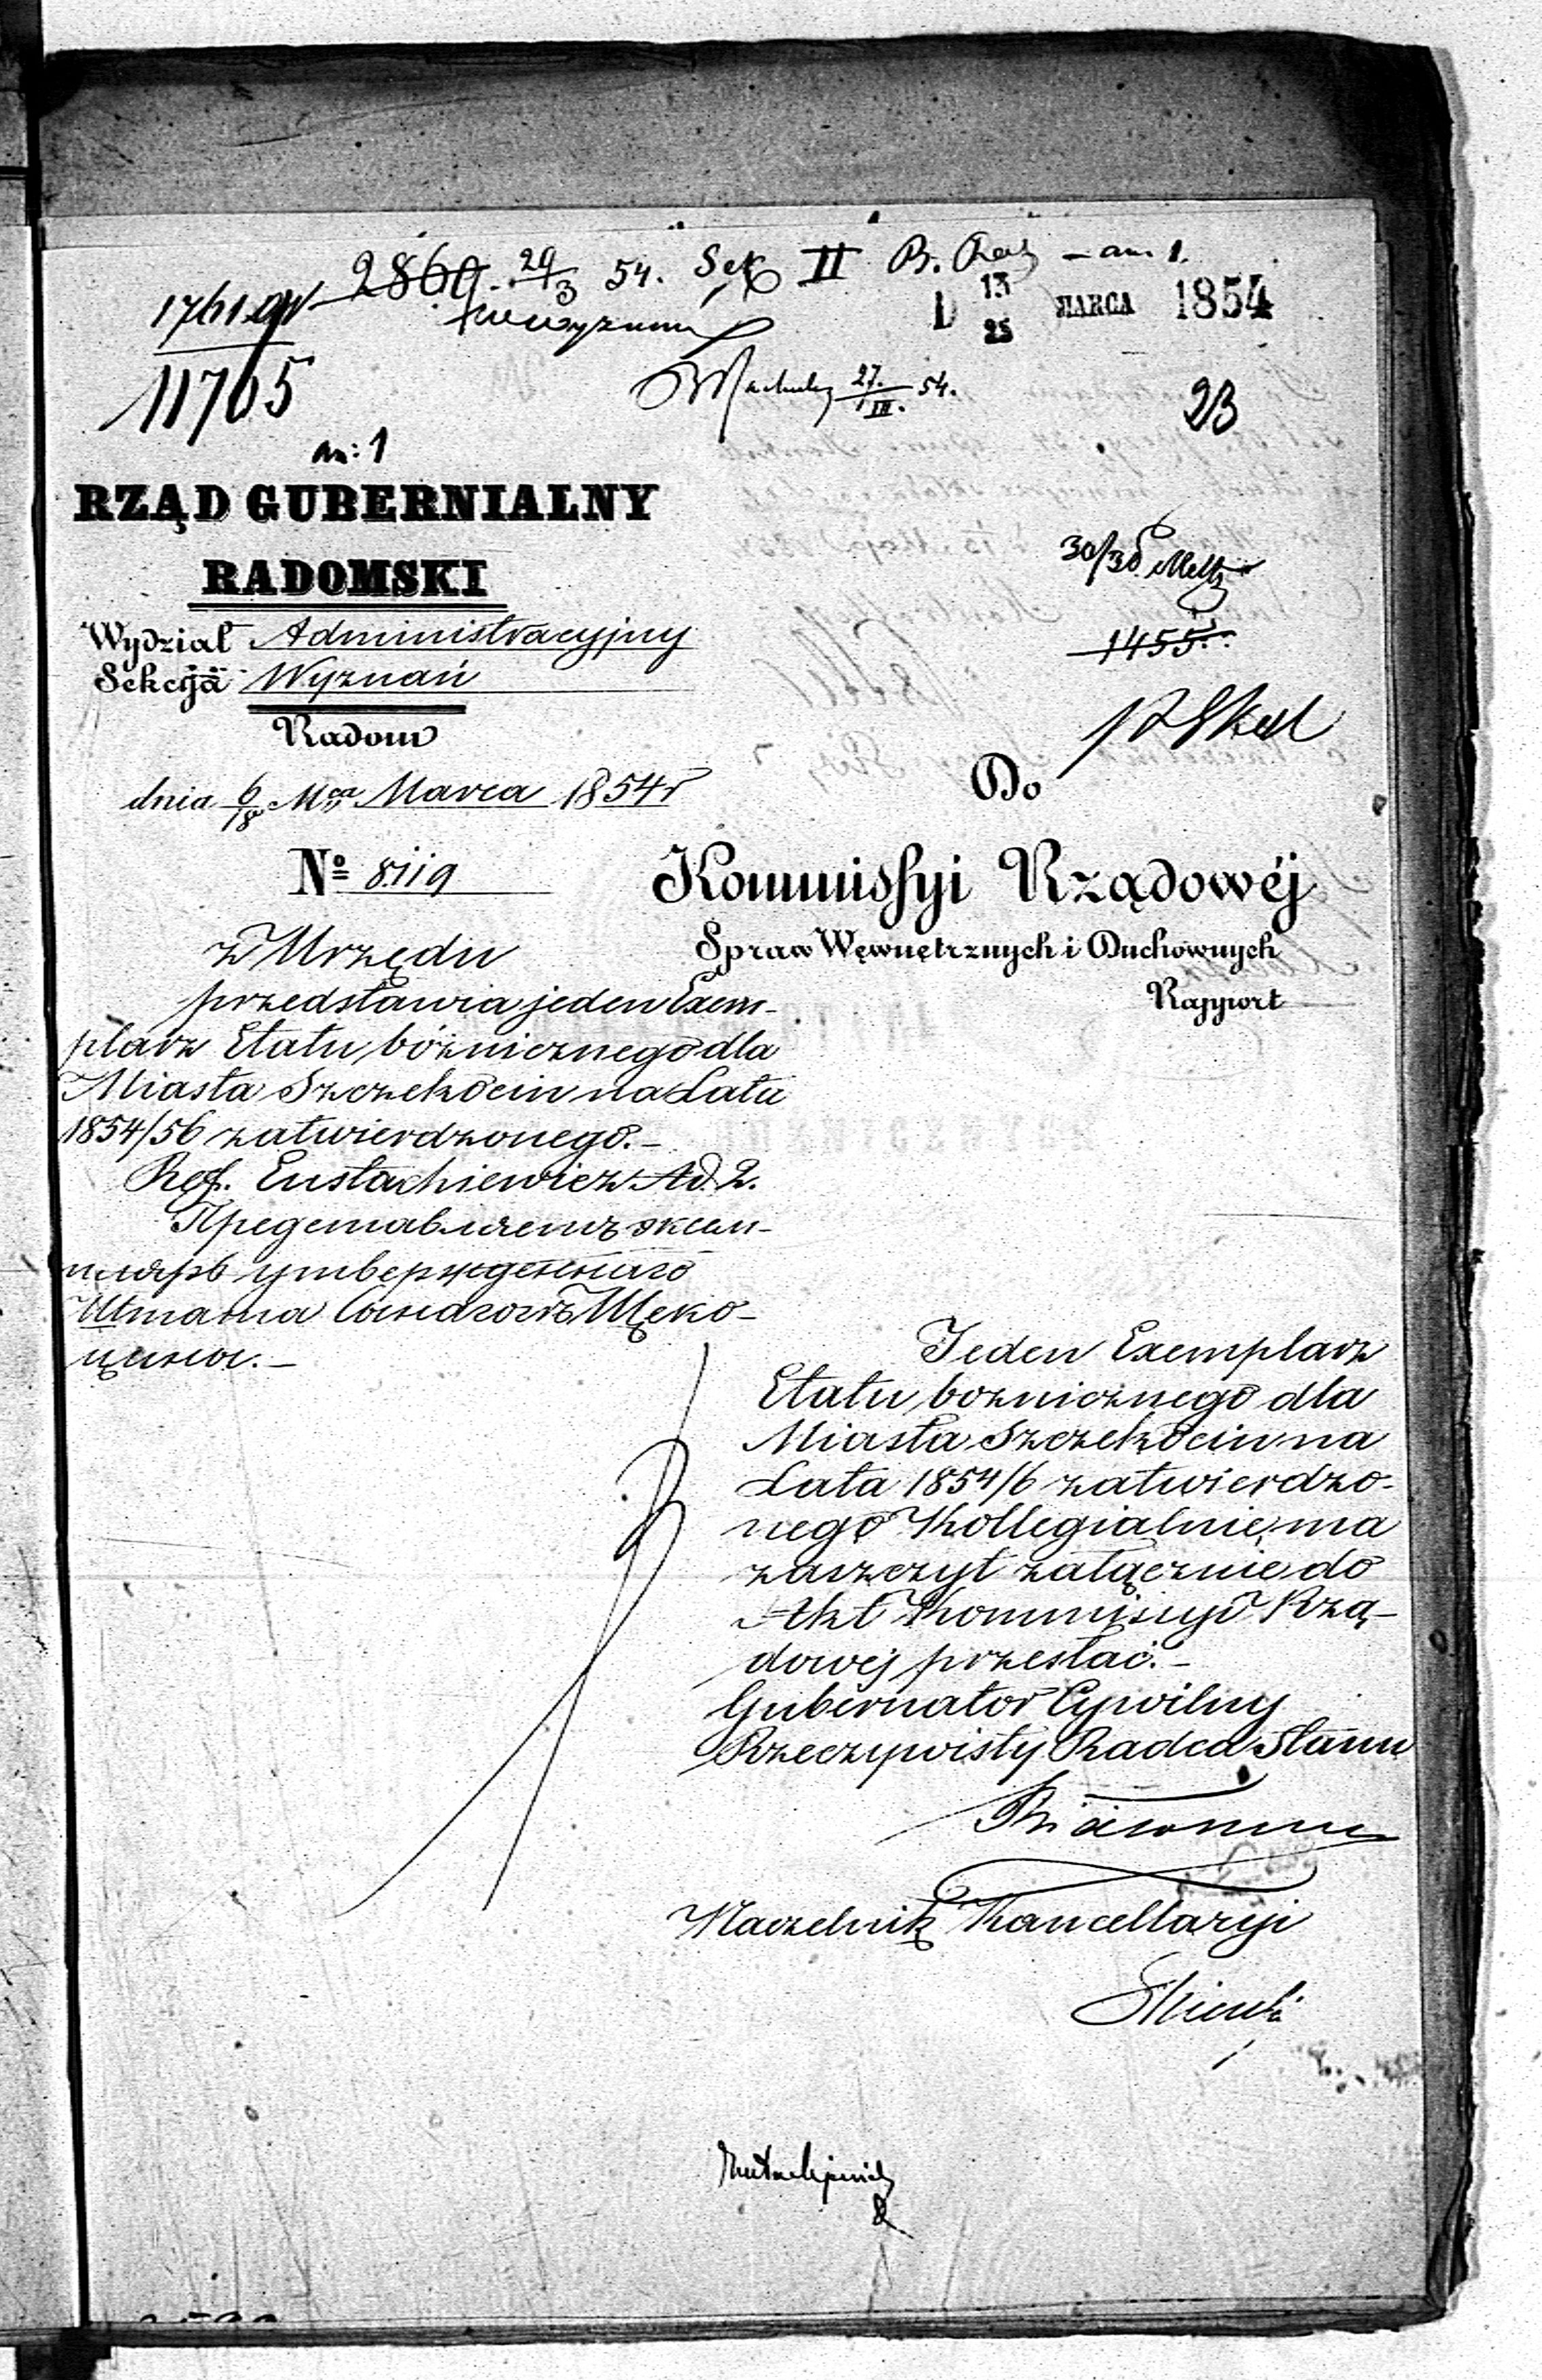 2860. 29/3 54. Sek II B. Rad — an: 1.
1761
D 13/25 MARCA 1854
11705
27./III. 54.
23
an: 1
RZĄD GUBERNIALNY
RADOMSKI
30/30
1455
Wydział Administracyjny
Sekcyja Wyznań
Radom
dnia 6/18 Mca Marca 1854 r
Do
№ 8119
Kommissyi Rządowéj
Spraw Wewnętrznych i Duchownych
Rapport
z Urzędu
przedstawia jeden Exem-
plarz Etatu bóżnicznego dla
Miasta Szczekocin na Lata
1854/56 zatwierdzonego.—
Ref. Eustachiewicz Ad. 2.
Представленъ экзем-
пляръ утвержденнаго
Штата Божницъ Щеко-
цины.—
Jeden Exemplarz
Etatu bożnicznego dla
Miasta Szczekocin na
Lata 1854/6 zatwierdzo-
nego Kollegialnie, ma
zaszczyt załącznie do
Akt Kommissyi Rzą-
dowéj przesłać.—
Gubernator Cywilny
Rzeczywisty Radca Stanu
Naczelnik Kancellaryi